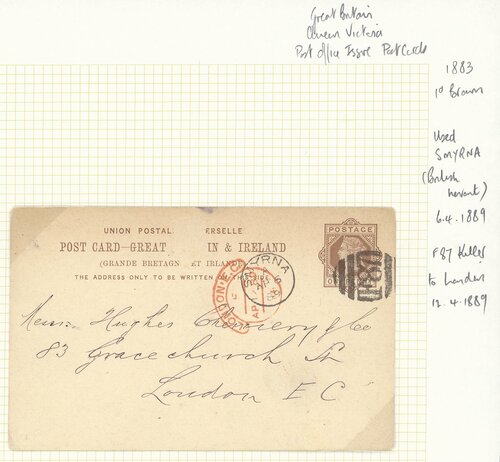 Great Britain
Queen Victoria
Post Office Issue Post Cards
1883
1d Brown
Used
SMYRNA
(British
Levant)
6.4.1889
F87 Killer
to London
12.4.1889
UNION POSTAL ERSELLE
POST CARD–GREAT IN & IRELAND
(GRANDE BRETAGN ET IRLAN
THE ADDRESS ONLY TO BE WRITTEN SIDE
POSTAGE
SMYRNA
AP 6
LONDON·E.C
AP
F87
Messrs Hughes & Co
83 Gracechurch St
London E C